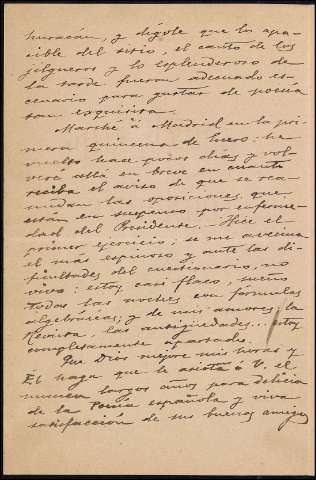 huracán, y dígole que lo apa-
cible del sitio, el canto de los
gilgueros y lo esplenderoso de
la tarde fueron adecuado es-
cenario para gustar de poesía
tan exquisita.
Marché á Madrid en la pri-
mera quincena de Enero: he
vuelto hace pocos días y vol-
veré allá en breve en cuanto
reciba el aviso de que se rea-
nudan las oposiciones, que
están en suspenso por enferme-
dad del Presidente. Hice el
primer ejercicio; se me avecina
el más espinoso y ante las di-
ficultades del cuestionario, no
vivo: estoy casi flaco, sueño
todas las noches con fórmulas
algebráicas; y de mis amores la
Revista, las antigüedades... estoy
completamente apartado.
Que Dios mejore mis horas y
Él haga que le asista á V. el
numen largos años para delicia
de la Poesía española y viva
satisfacción de sus buenos amigos